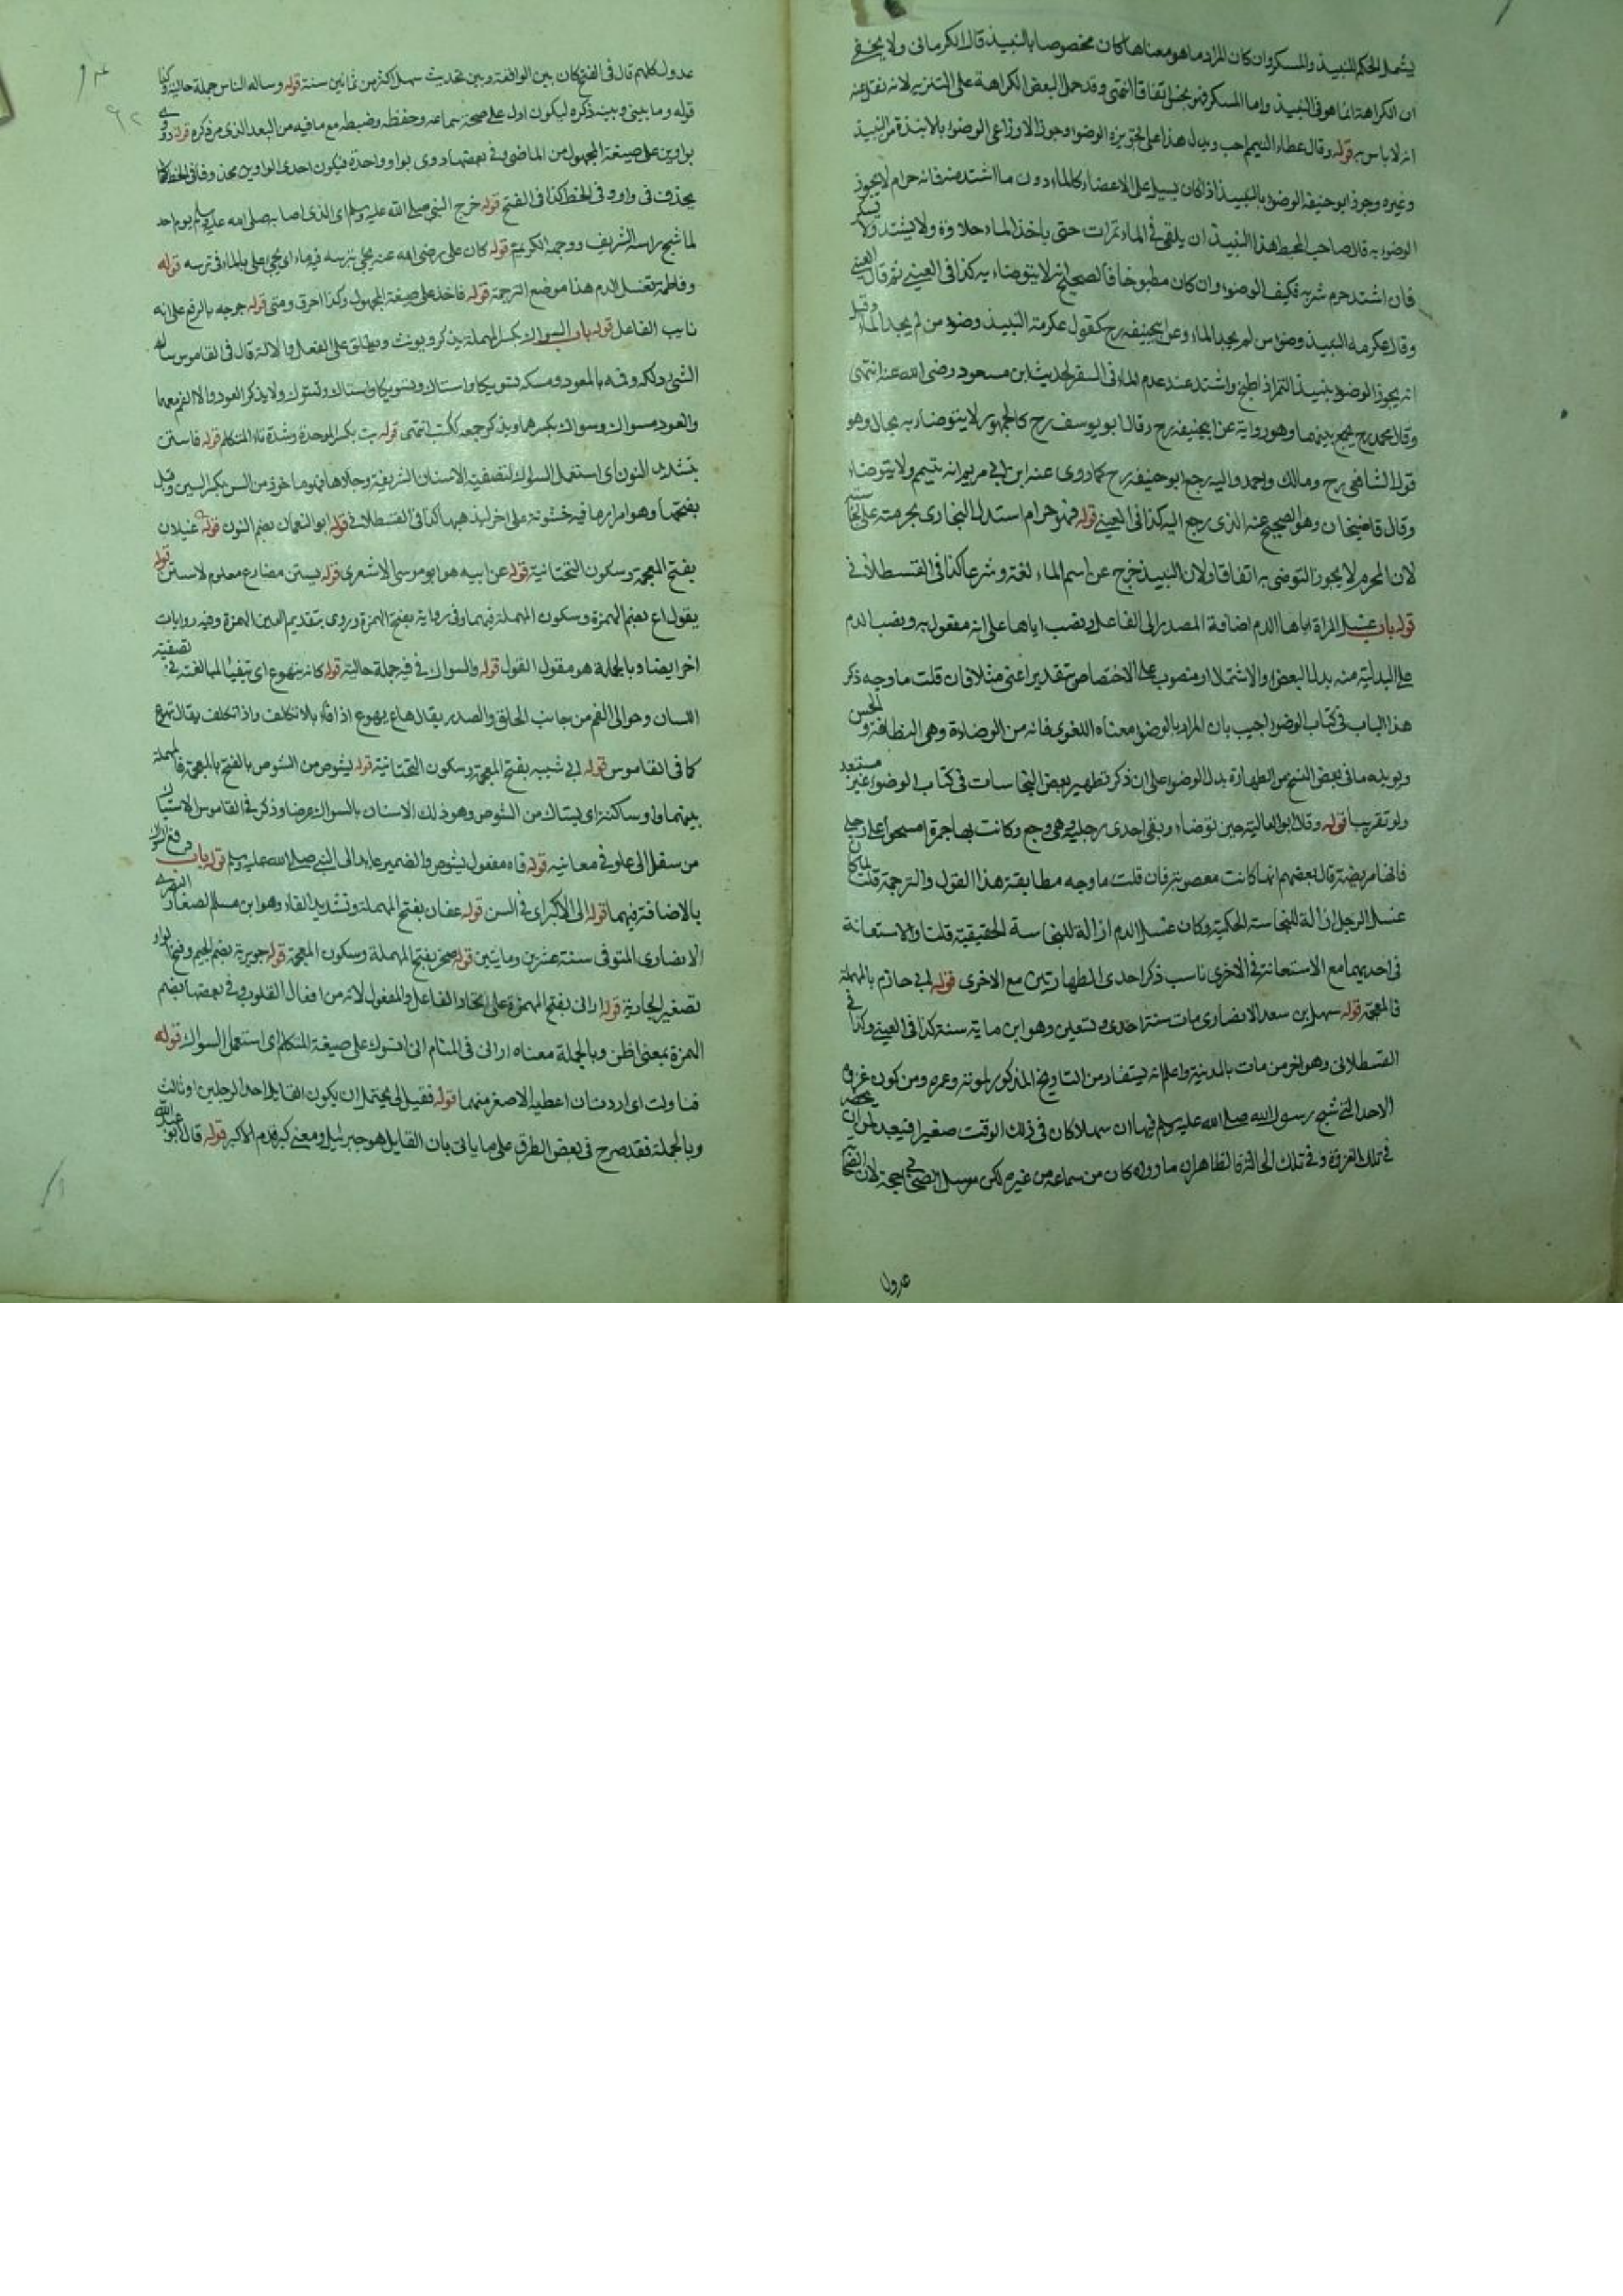 يشمل الحكم للنبيذ والمسكر وان كان المراد ما هو معناها كان مخصوصا بالنبيذ قال الكرمانى ولا يخفى
ان الكراهة انما هو فى النبيذ واما المسكر فنجس اتفاقا انتهى وقد حمل البعض الكراهة على التنزيه لانه نقل عنه
انه لا باس به قوله وقال عطاء التيمم احب ويدل هذا على تجويزه الوضوء وجوز الاوزاعى الوضوء بالانبذة من النبيذ
وغيره وجوز ابو حنيفة الوضوء بالنبيذ اذا كان يسيل على الاعضاء كالماء دون ما اشتد منه فانه حرام لا يجوز
الوضوء به قال صاحب المحيط هذا النبيذ ان يلقى فى الماء تمرات حتى ياخذ الماء حلاوة ولا يشتد ولا يسكر
فان اشتد حرم شربه فكيف الوضوء وان كان مطبوخا فالصحيح انه لا يتوضاء به كذا فى العينى ثم قال العينى
وقال عكرمه النبيذ وضوء من لم يجد الماء وعن ابيحنيفه رح كقول عكرمة النبيذ وضوء من لم يجد الماء وقيل
انه يجوز الوضوء بنبيذ التمر اذا طبخ واشتد عند عدم الماء فى السفر لحديث ابن مسعود رضى الله عنه انتهى
وقال محمد رح يجمع بينهما وهو رواية عن ابيحنيفه رح وقال ابو يوسف رح كالجمهور لا يتوضاء به بحال وهو
قول الشافعى رح ومالك واحمد واليه رجع ابو حنيفة رح كما روى عنه ابن ابى مريم انه يتيمم ولا يتوضاء
وقال قاضيخان وهو الصحيح عنه الذى رجع اليه كذا فى العينى قوله فهو حرام استدل البخارى بحرمته على نجاسته
لان المحرم لا يجوز التوضى به اتفاقا ولان النبيذ خرج عن اسم الماء لغة وشرعا كذا فى القسطلانى
قوله باب غسل المراة اباها الدم اضافة المصدر الى الفاعل ونصب اباها على انه مفعول به ونصب الدم
على البدلية منه بدل البعض او الاشتمال او منصوب على الاختصاص بتقدير اعنى مثلا فان قلت ما وجه ذكر
هذا الباب فى كتاب الوضوء اجيب بان المراد بالوضوء معناه اللغوى فانه من الوضاءة وهى النظافة و الحسن
ويويده ما فى بعض النسخ من الطهارة بدل الوضوء على ان ذكر تطهير بعض النجاسات فى كتاب الوضوء غير مستبعد
ولو تقريبا قوله وقال ابو العالية حين توضاء وبقى احدى رجليه وهى وجع وكانت بها جمرة امسحوا على رجلى
فانها مريضة قال بعضهم انها كانت معصوبة فان قلت ما وجه مطابقة هذا القول والترجمة قلت لما كان
غسل الرجل ازالة للنجاسة الحكمية وكان غسل الدم ازالة للنجاسة الحقيقية قلنا والاستعانة
فى احديهما مع الاستعانة فى الاخرى ناسب ذكر احدى الطهارتين مع الاخرى قوله ابى حازم بالمهملة
فالمعجمة قوله سهل بن سعد الانصارى مات سنة احدى وتسعين وهو ابن ماية سنة كذا فى العينى وكذا فى
القسطلانى وهو اخر من مات بالمدينة واعلم انه يستفاد من التاريخ المذكور لموته وعمره ومن كون غزوة
الاحد التى شج رسول الله صلى الله عليه وسلم فيها ان سهلا كان فى ذلك الوقت صغيرا فيبعد ان يحضر
فى تلك الغزوة وفى تلك الحالة فالظاهر ان ما رواه كان من سماعه من غيره لكن مرسل الصحابى حجة لان الصحابة
عدول
عدول كلهم قال فى الفتح كان بين الواقعة وبين تحديث سهل اكثر من ثمانين سنة قوله وساله الناس جملة حالية وكذا
قوله وما بينى وبينه ذكره ليكون ادل على صحة سماعه وحفظه وضبطه مع ما فيه من البعد الذى مر ذكره قوله دووى
بواوين على صيغة المجهول من الماضى وفى بعضها دوى بواو واحدة فيكون احدى الواوين محذوفا فى الخط كما
يحذف فى داود فى الخط كذا فى الفتح قوله خرج النبى صلى الله عليه وسلم اى الذى اصابه صلى الله عليه وسلم يوم احد
لما شج راسه الشريف ووجهه الكريم قوله كان على رضى الله عنه يجئ بترسه فيه ماء اى يجئ على بالماء فى ترسه قوله
وفاطمة تغسل الدم هذا موضع الترجمة قوله فاخذ على صيغة المجهول وكذا احرق وحشى قوله جرحه بالرفع على انه
نايب الفاعل قوله باب السواك بكسر المهملة يذكر ويونث ويطلق على الفعل والالة قال فى القاموس ساك
الشئ دلكه وفمه بالعود وسوكه تسويكا واستاك وتسوك ولا يذكر العود ولا الفم معهما
والعود مسواك وسواك بكسرهما ويذكر جمعه ككتب انتهى قوله بت بكسر الموحدة وشدة تاء المتكلم قوله فاستن
بتشديد النون اى استعمل السواك لتصفية الاسنان الشريفة وجلاءها فهو ماخوذ من السن بكسر السين وقيل
بفتحها وهو امرار ما فيه خشونة على اخر ليذهبها كذا فى القسطلانى قوله ابو النعمان بضم النون قوله غيلان
بفتح المعجمة وسكون التحتانية قوله عن ابيه هو ابو موسى الاشعرى قوله يستن مضارع معلوم لاستن قوله
يقول اع بضم الهمزة وسكون المهملة فيهما وفى رواية بفتح الهمزة وروى بتقديم العين الهمزة وفيه روايات
اخر ايضا وبالجملة هو مقول القول قوله والسواك فى فيه جملة حالية قوله كانه يتهوع اى يتقيأ للمبالغة فى تصفية
اللسان وحوالى الفم من جانب الحلق والصدر يقال هاع يهوع اذا قاء بلا تكلف واذا تكلف يقال تهوع
كما فى القاموس قوله ابى شيبه بفتح المعجمة وسكون التحتانية قوله يشوص من الشوص بالفتح بالمعجمة فالمهملة
بينهما واو ساكنة اى يستاك من الشوص وهو ذلك الاسنان بالسواك عرضا وذكر فى القاموس الاستياك
من سفل الى علو فى معانيه قوله فاه مفعول يشوص والضمير عايد الى النبى صلى الله عليه وسلم قوله باب دفع السواك
بالاضافة فيهما قوله الى الاكبر اى فى السن قوله عفان بفتح المهملة وتشديد الفاء وهو ابن مسلم الصغار البصرى
الانصارى المتوفى سنة عشرين ومايتين قوله صخر بفتح المهملة وسكون المعجمة قوله جويرية بضم الجيم وفتح الواو
تصغير الجارية قوله ارانى بفتح الهمزة على اتحاد الفاعل والمفعول لانه من افعال القلوب وفى بعضها بضم
الهمزة بمعنى اظن وبالجملة معناه ارانى فى المنام انى اتسوك على صيغة المتكلم اى استعمل السواك قوله
فناولت اى اردت ان اعطيه الاصغر منهما قوله فقيل لى يحتمل ان يكون القايل احد الرجلين او ثالث
وبالجملة فقد صرح فى بعض الطرق على ما ياتى بان القايل هو جبرئيل ومعنى كبر قدم الاكبر قوله قال ابو عبد الله